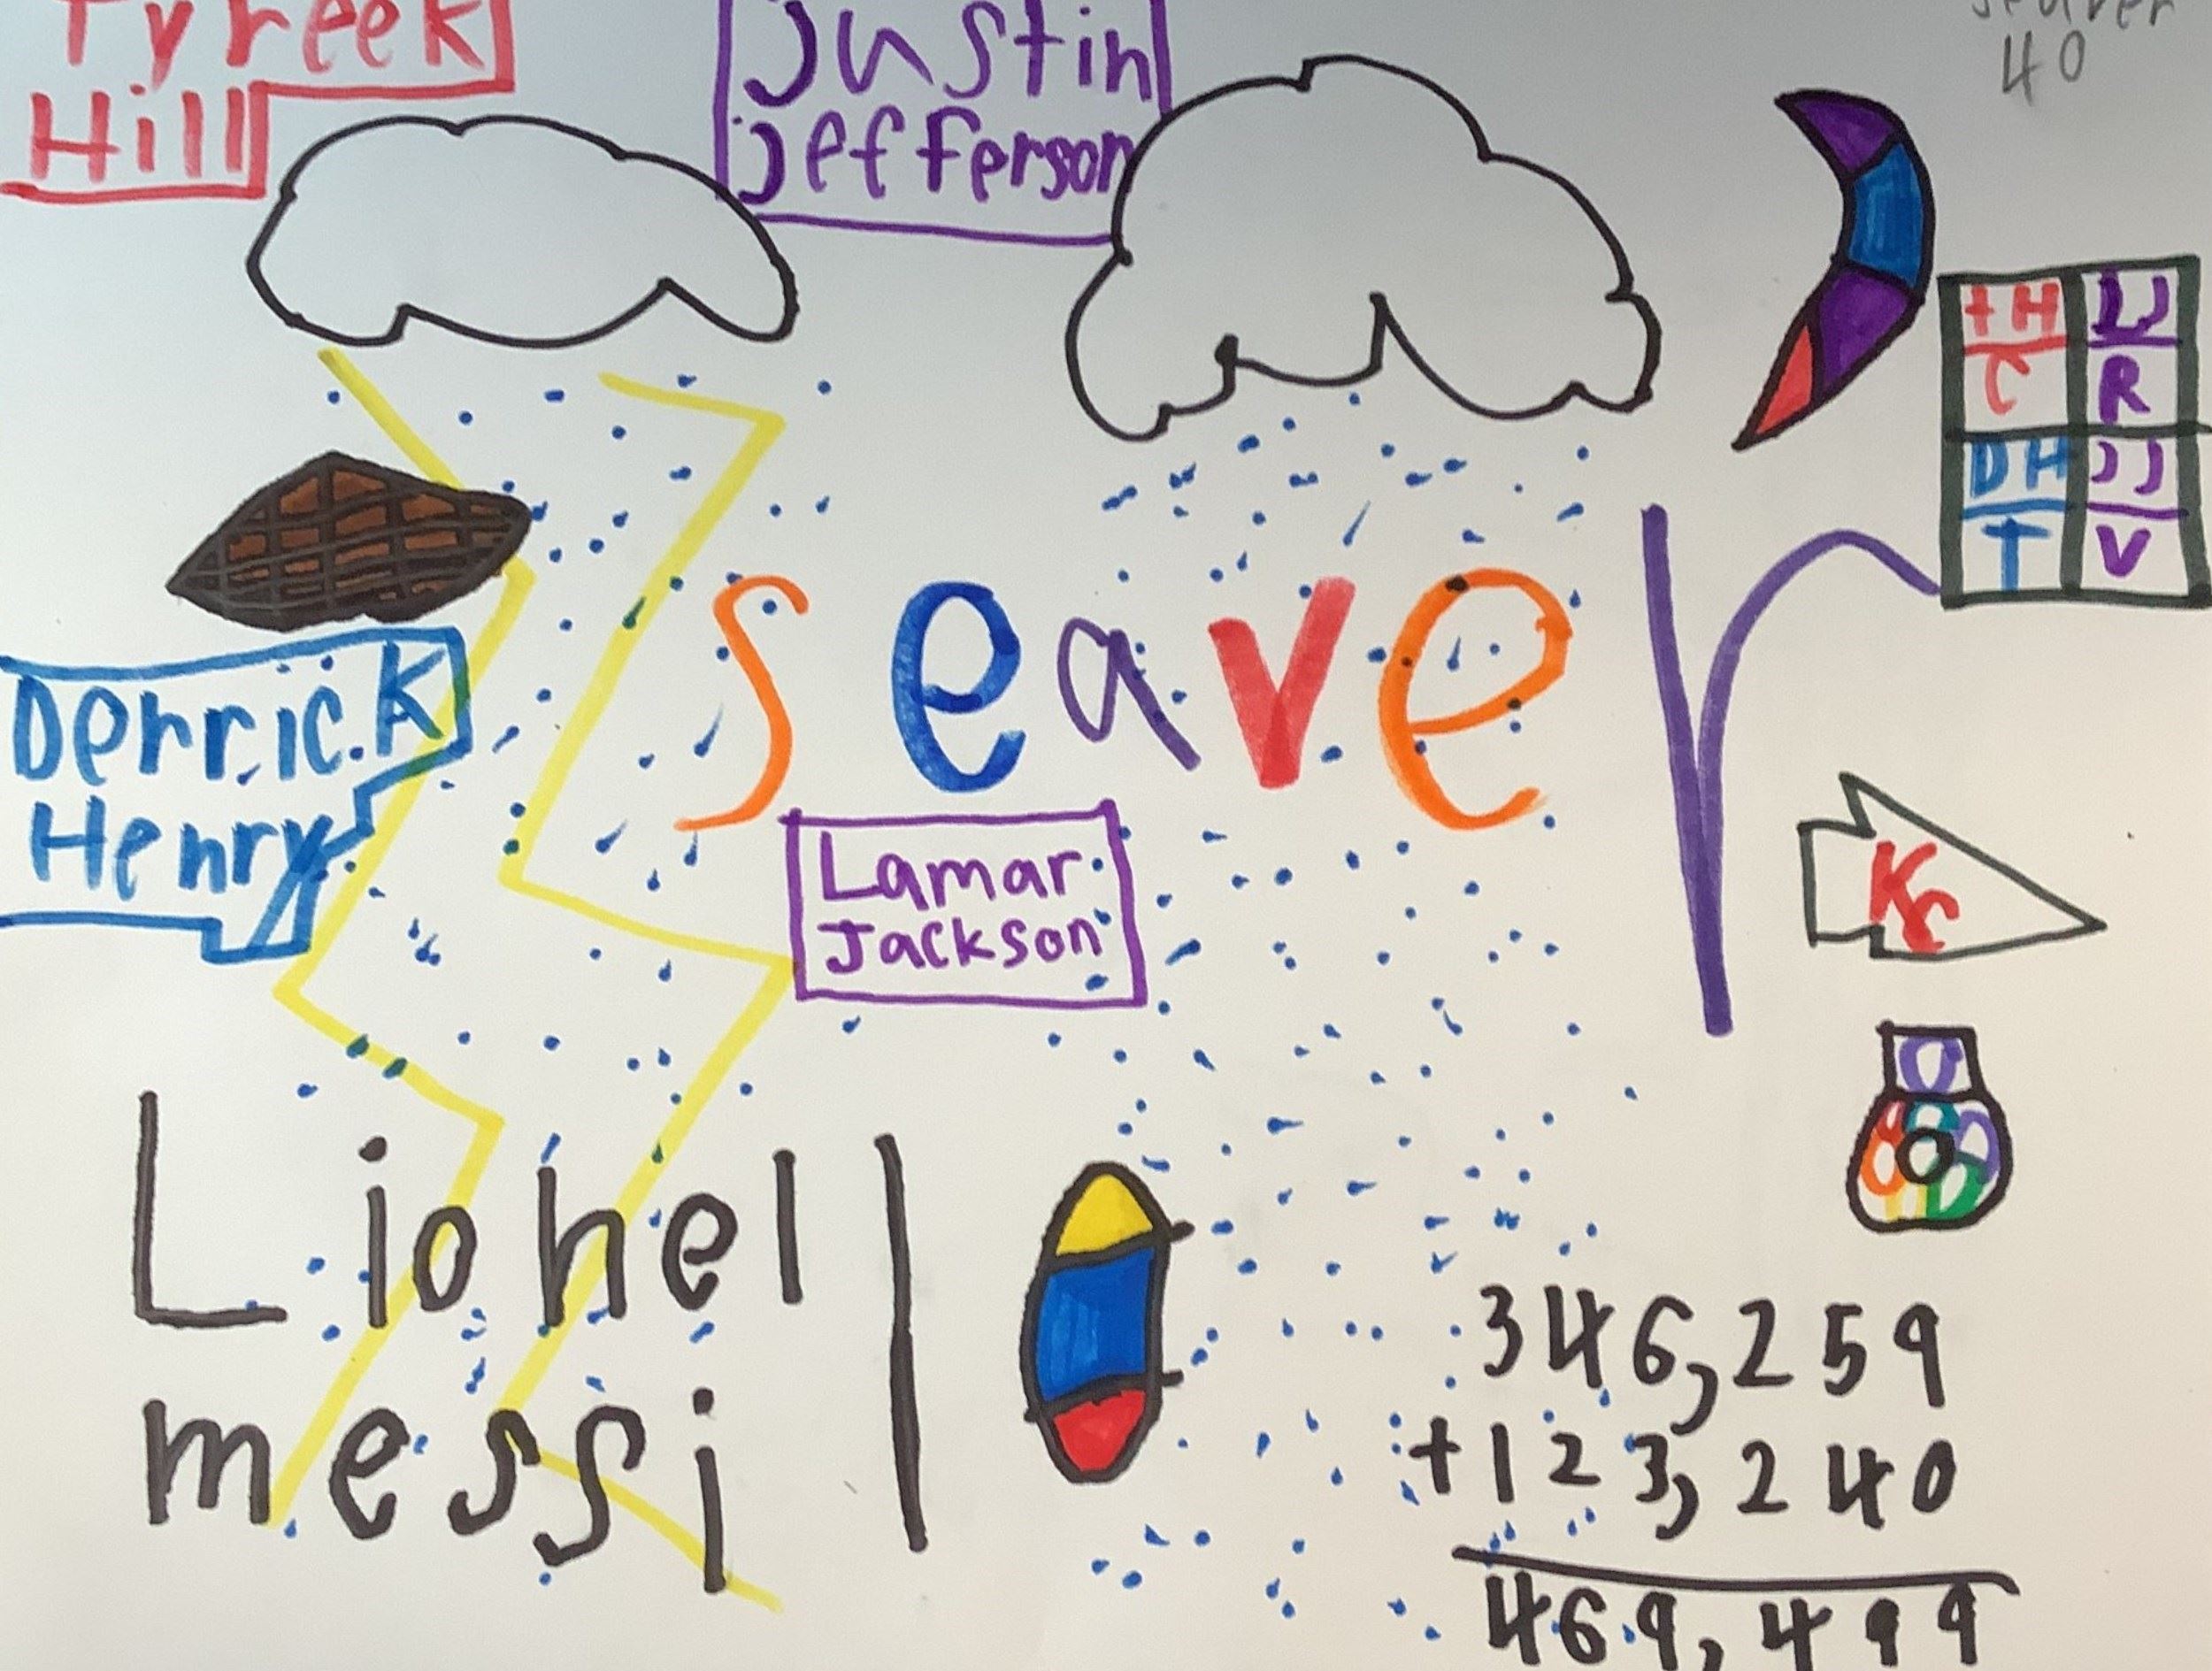 Tyreek
Hill
Justin
Jefferson
seaver
40
tH
C
LJ
R
DH
T
JJ
V
seaver
Derrick
Henry
Lamar
Jackson
KC
Lionel
messi
346,259
+123,240
469,499